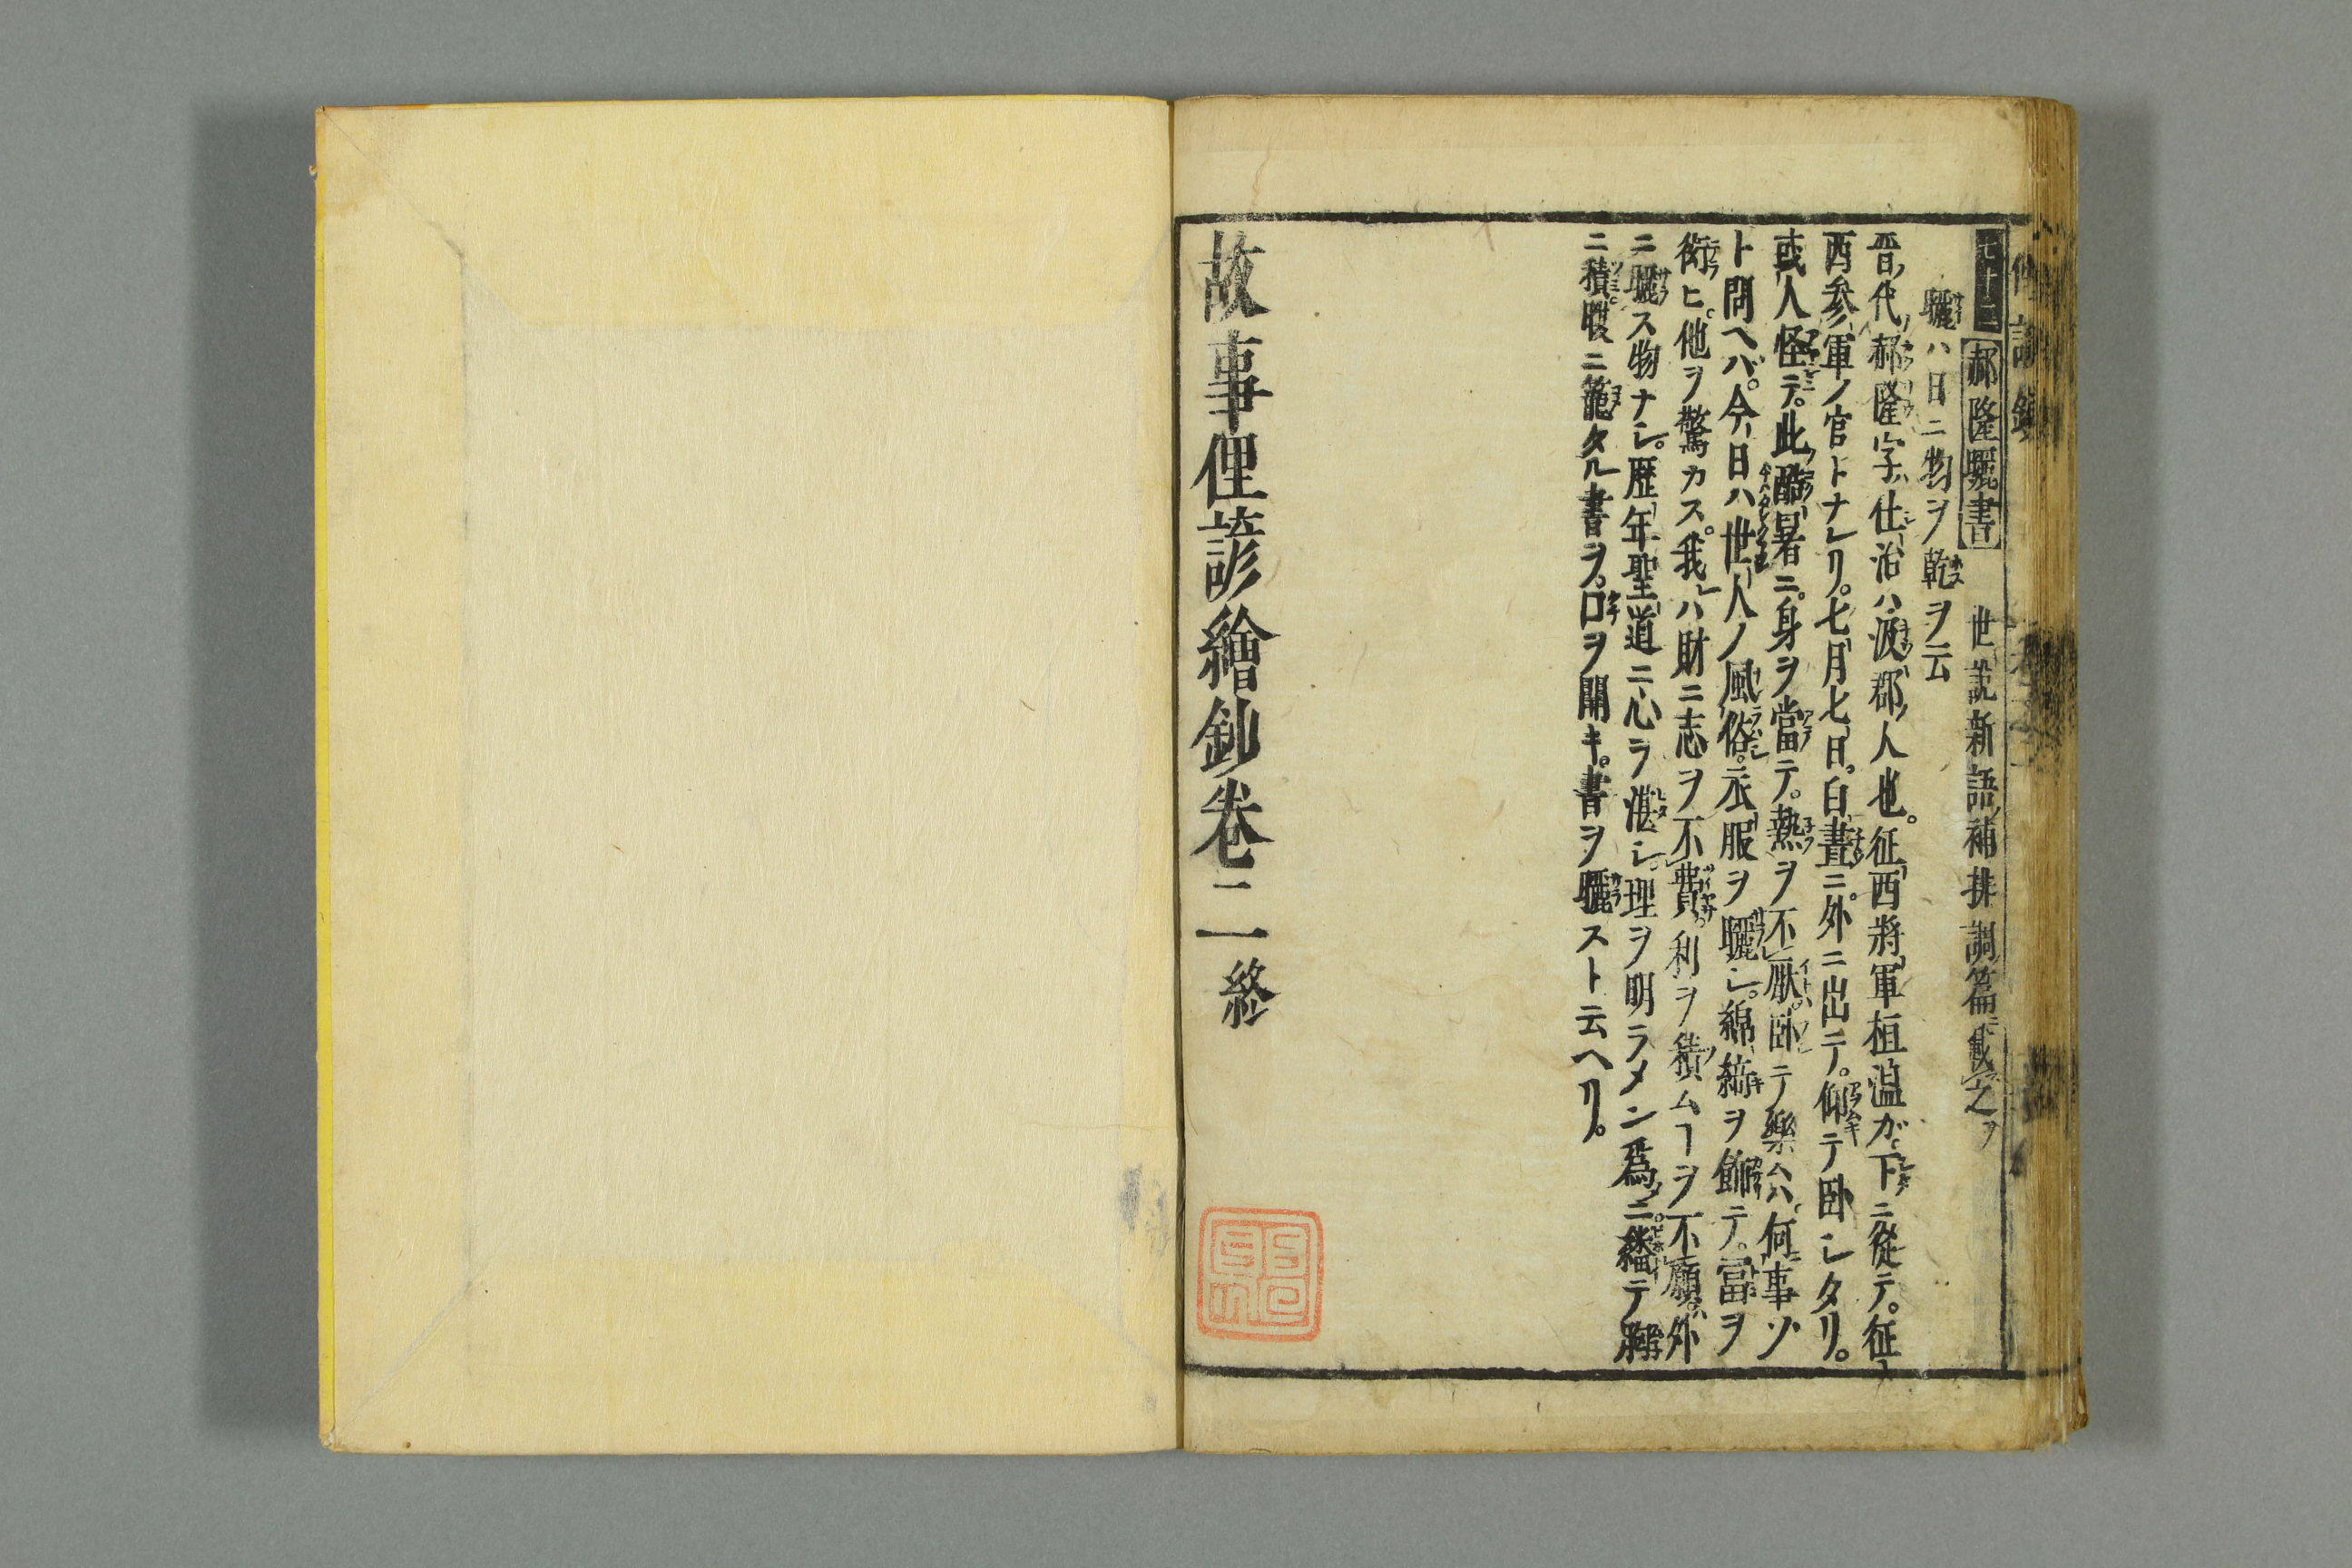 郝隆曬書　世説新語補排調篇ニ載之ヲ
曬ハ日ニ物ヲ乾ヲ云
晋代郝隆字仕治ハ汲郡人也。征西將軍桓温ガ下ニ從テ。征
西参軍ノ官トナレリ。七月七日。白晝ニ。外ニ出テ。仰テ卧シタリ。
或人怪テ。此酷暑ニ。身ヲ當テ。熱ヲ不厭。卧テ樂ムハ。何事ソ
ト問ヘバ。今日ハ世人ノ風俗。衣服ヲ曬シ。綿絹ヲ飾テ。冨ヲ
衒ヒ。他ヲ驚カス。我ハ財ニ志ヲ不費。利ヲ積ムヿヲ不願。外
ニ曬ス物ナシ。歴年聖道ニ心ヲ湛シ。理ヲ明ラメン爲ニ。繙テ
ニ積。腹ニ籠タル書ヲ。口ヲ開キ。書ヲ曬スト云ヘリ。
故事俚諺繪鈔卷二終